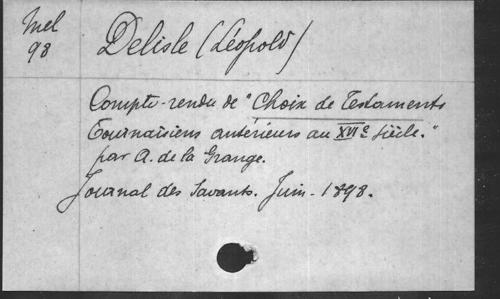 Mel
98
Delisle (Léopold)
Compte-rendu de "Choix de Testaments
Tournaisiens antérieurs au XVIe siècle."
par A. de la Grange.
Journal des Savants. Juin-1898.